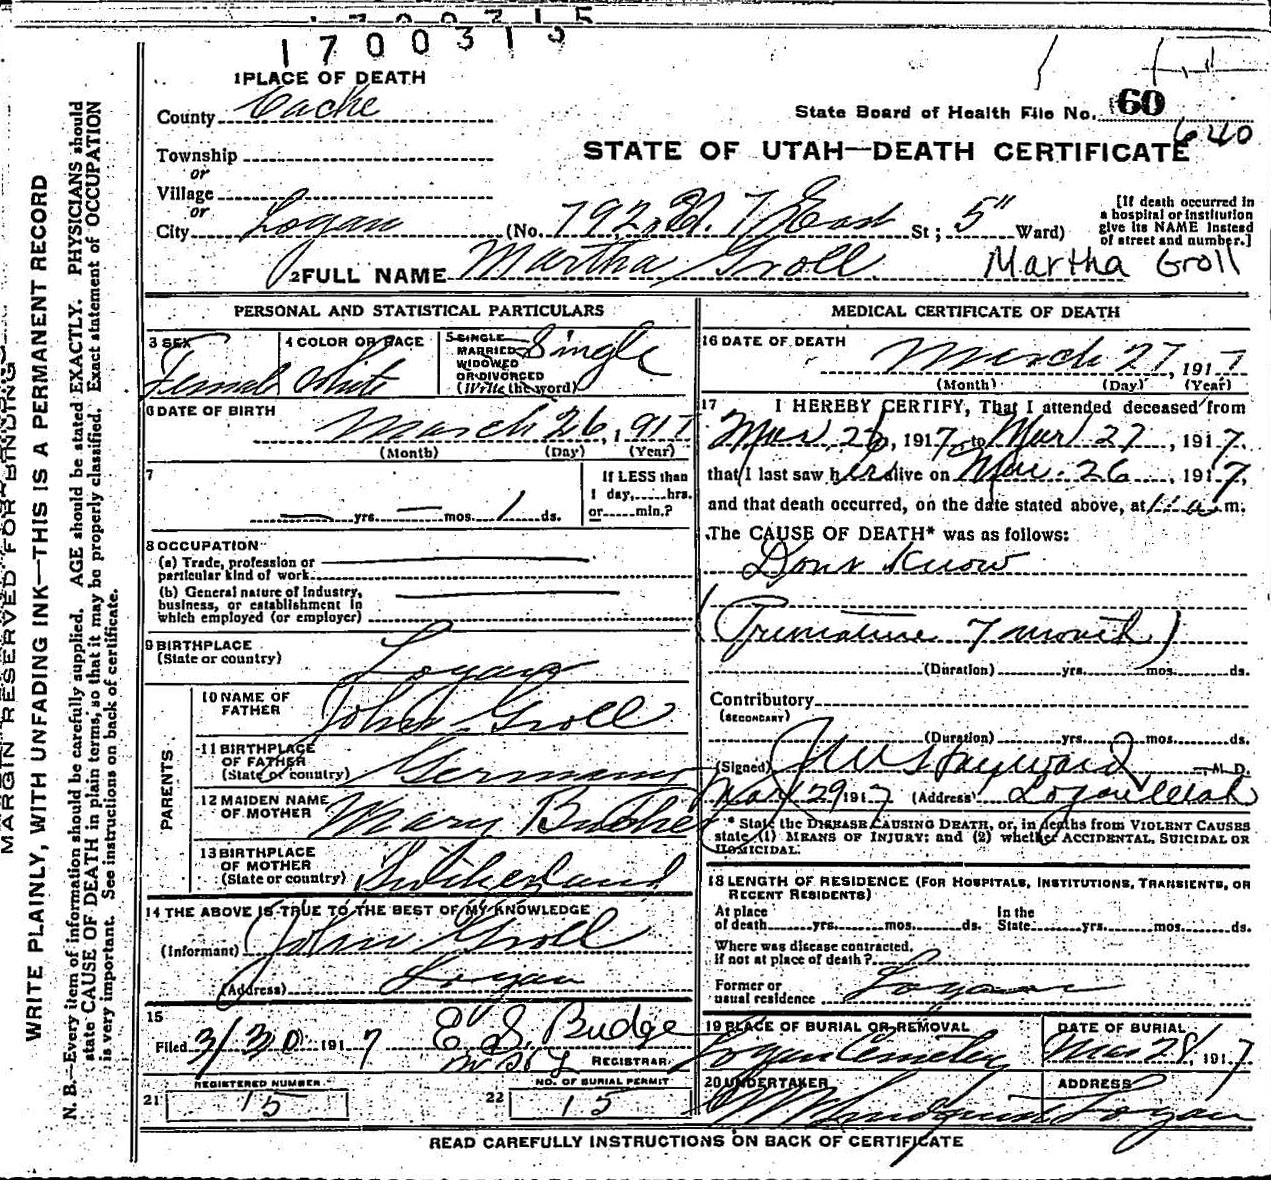 1700315
1 PLACE OF DEATH
County Cache
State Board of Health File No. 60
640
Township
or
STATE OF UTAH—DEATH CERTIFICATE
Village
or
City Logan (No. 792 East St; 5" Ward)
[If death occurred in
a hospital or institution
give its NAME instead
of street and number.]
2 FULL NAME Martha Groll Martha Groll
PERSONAL AND STATISTICAL PARTICULARS
3 SEX
Female
4 COLOR OR RACE
White
5 SINGLE
MARRIED
WIDOWED
OR DIVORCED
(Write the word)
Single
6 DATE OF BIRTH
March 26, 1917
(Month) (Day) (Year)
7
— yrs. — mos. 1 ds.
If LESS than
1 day,......hrs.
or......min.?
8 OCCUPATION
(a) Trade, profession or
particular kind of work
(b) General nature of Industry,
business, or establishment in
which employed (or employer)
9 BIRTHPLACE
(State or country) Logan
PARENTS
10 NAME OF
FATHER John Groll
11 BIRTHPLACE
OF FATHER
(State or country) Germany
12 MAIDEN NAME
OF MOTHER Mary
13 BIRTHPLACE
OF MOTHER
(State or country)
14 THE ABOVE IS TRUE TO THE BEST OF MY KNOWLEDGE
(Informant) John Groll
(Address) Logan
15
Filed 3/30 1917 E. S. Budge
REGISTRAR
REGISTERED NUMBER
21 15
NO. OF BURIAL PERMIT
22 15
MEDICAL CERTIFICATE OF DEATH
16 DATE OF DEATH
March 27, 1917
(Month) (Day) (Year)
17 I HEREBY CERTIFY, That I attended deceased from
Mar 26, 1917, to Mar 27, 1917,
that I last saw her alive on Mar. 26, 1917,
and that death occurred, on the date stated above, at m.
The CAUSE OF DEATH* was as follows:
Dont Know
(Premature 7 month)
(Duration) yrs. mos. ds.
Contributory
(SECONDARY)
(Duration) yrs. mos. ds.
(Signed) Hayward M. D.
Mar 29 1917 (Address) Logan Utah
* State the DISEASE CAUSING DEATH, or, in deaths from VIOLENT CAUSES
state (1) MEANS OF INJURY; and (2) whether ACCIDENTAL, SUICIDAL OR
HOMICIDAL.
18 LENGTH OF RESIDENCE (FOR HOSPITALS, INSTITUTIONS, TRANSIENTS, OR
RECENT RESIDENTS)
At place
of death yrs. mos. ds.
In the
State yrs. mos. ds.
Where was disease contracted,
if not at place of death?
Former or
usual residence Logan
19 PLACE OF BURIAL OR REMOVAL
Logan Cemetery
DATE OF BURIAL
Mar 28, 1917
20 UNDERTAKER
ADDRESS
Logan
READ CAREFULLY INSTRUCTIONS ON BACK OF CERTIFICATE
MARGIN RESERVED FOR BINDING
WRITE PLAINLY, WITH UNFADING INK—THIS IS A PERMANENT RECORD
N. B.—Every item of information should be carefully supplied. AGE should be stated EXACTLY. PHYSICIANS should
state CAUSE OF DEATH in plain terms, so that it may be properly classified. Exact statement of OCCUPATION
is very important. See instructions on back of certificate.